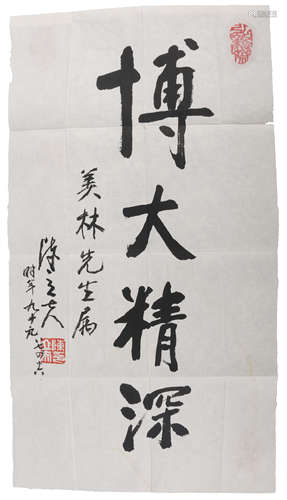 博大精深
美林先生属
陈立夫
时年九十九